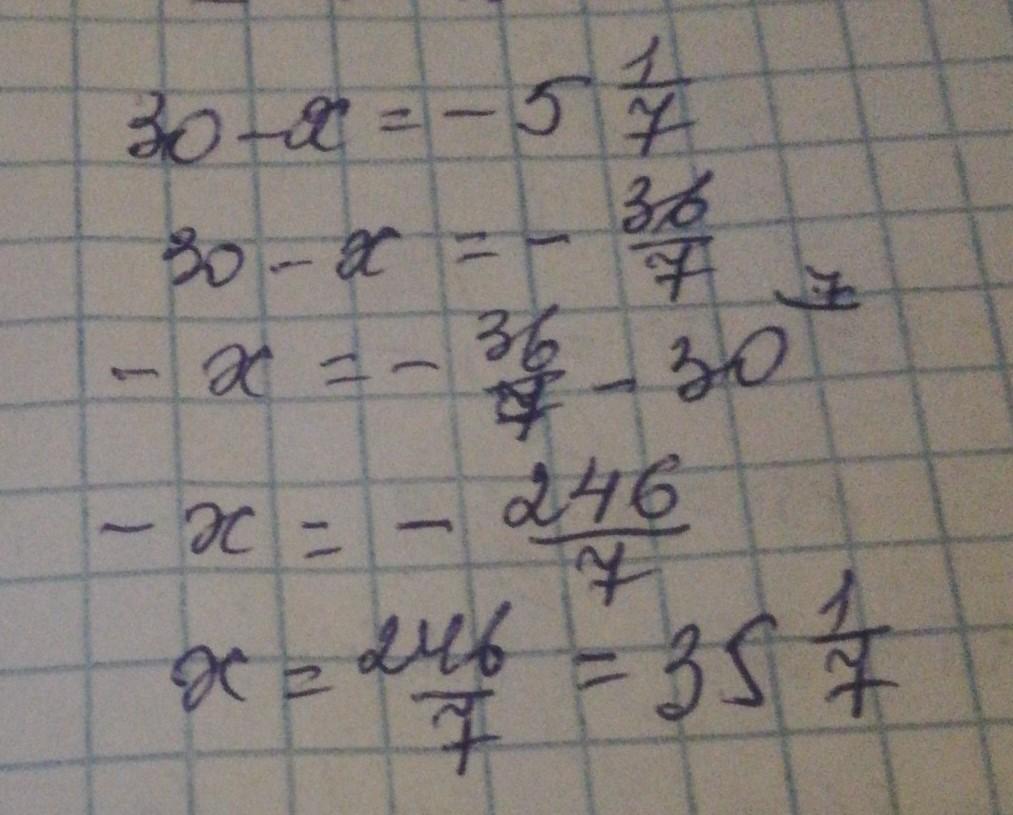 30 - x = - 5 1/7
30 - x = - 36/7
- x = - 36/7 - 30 7
- x = - 246/7
x = 246/7 = 35 1/7